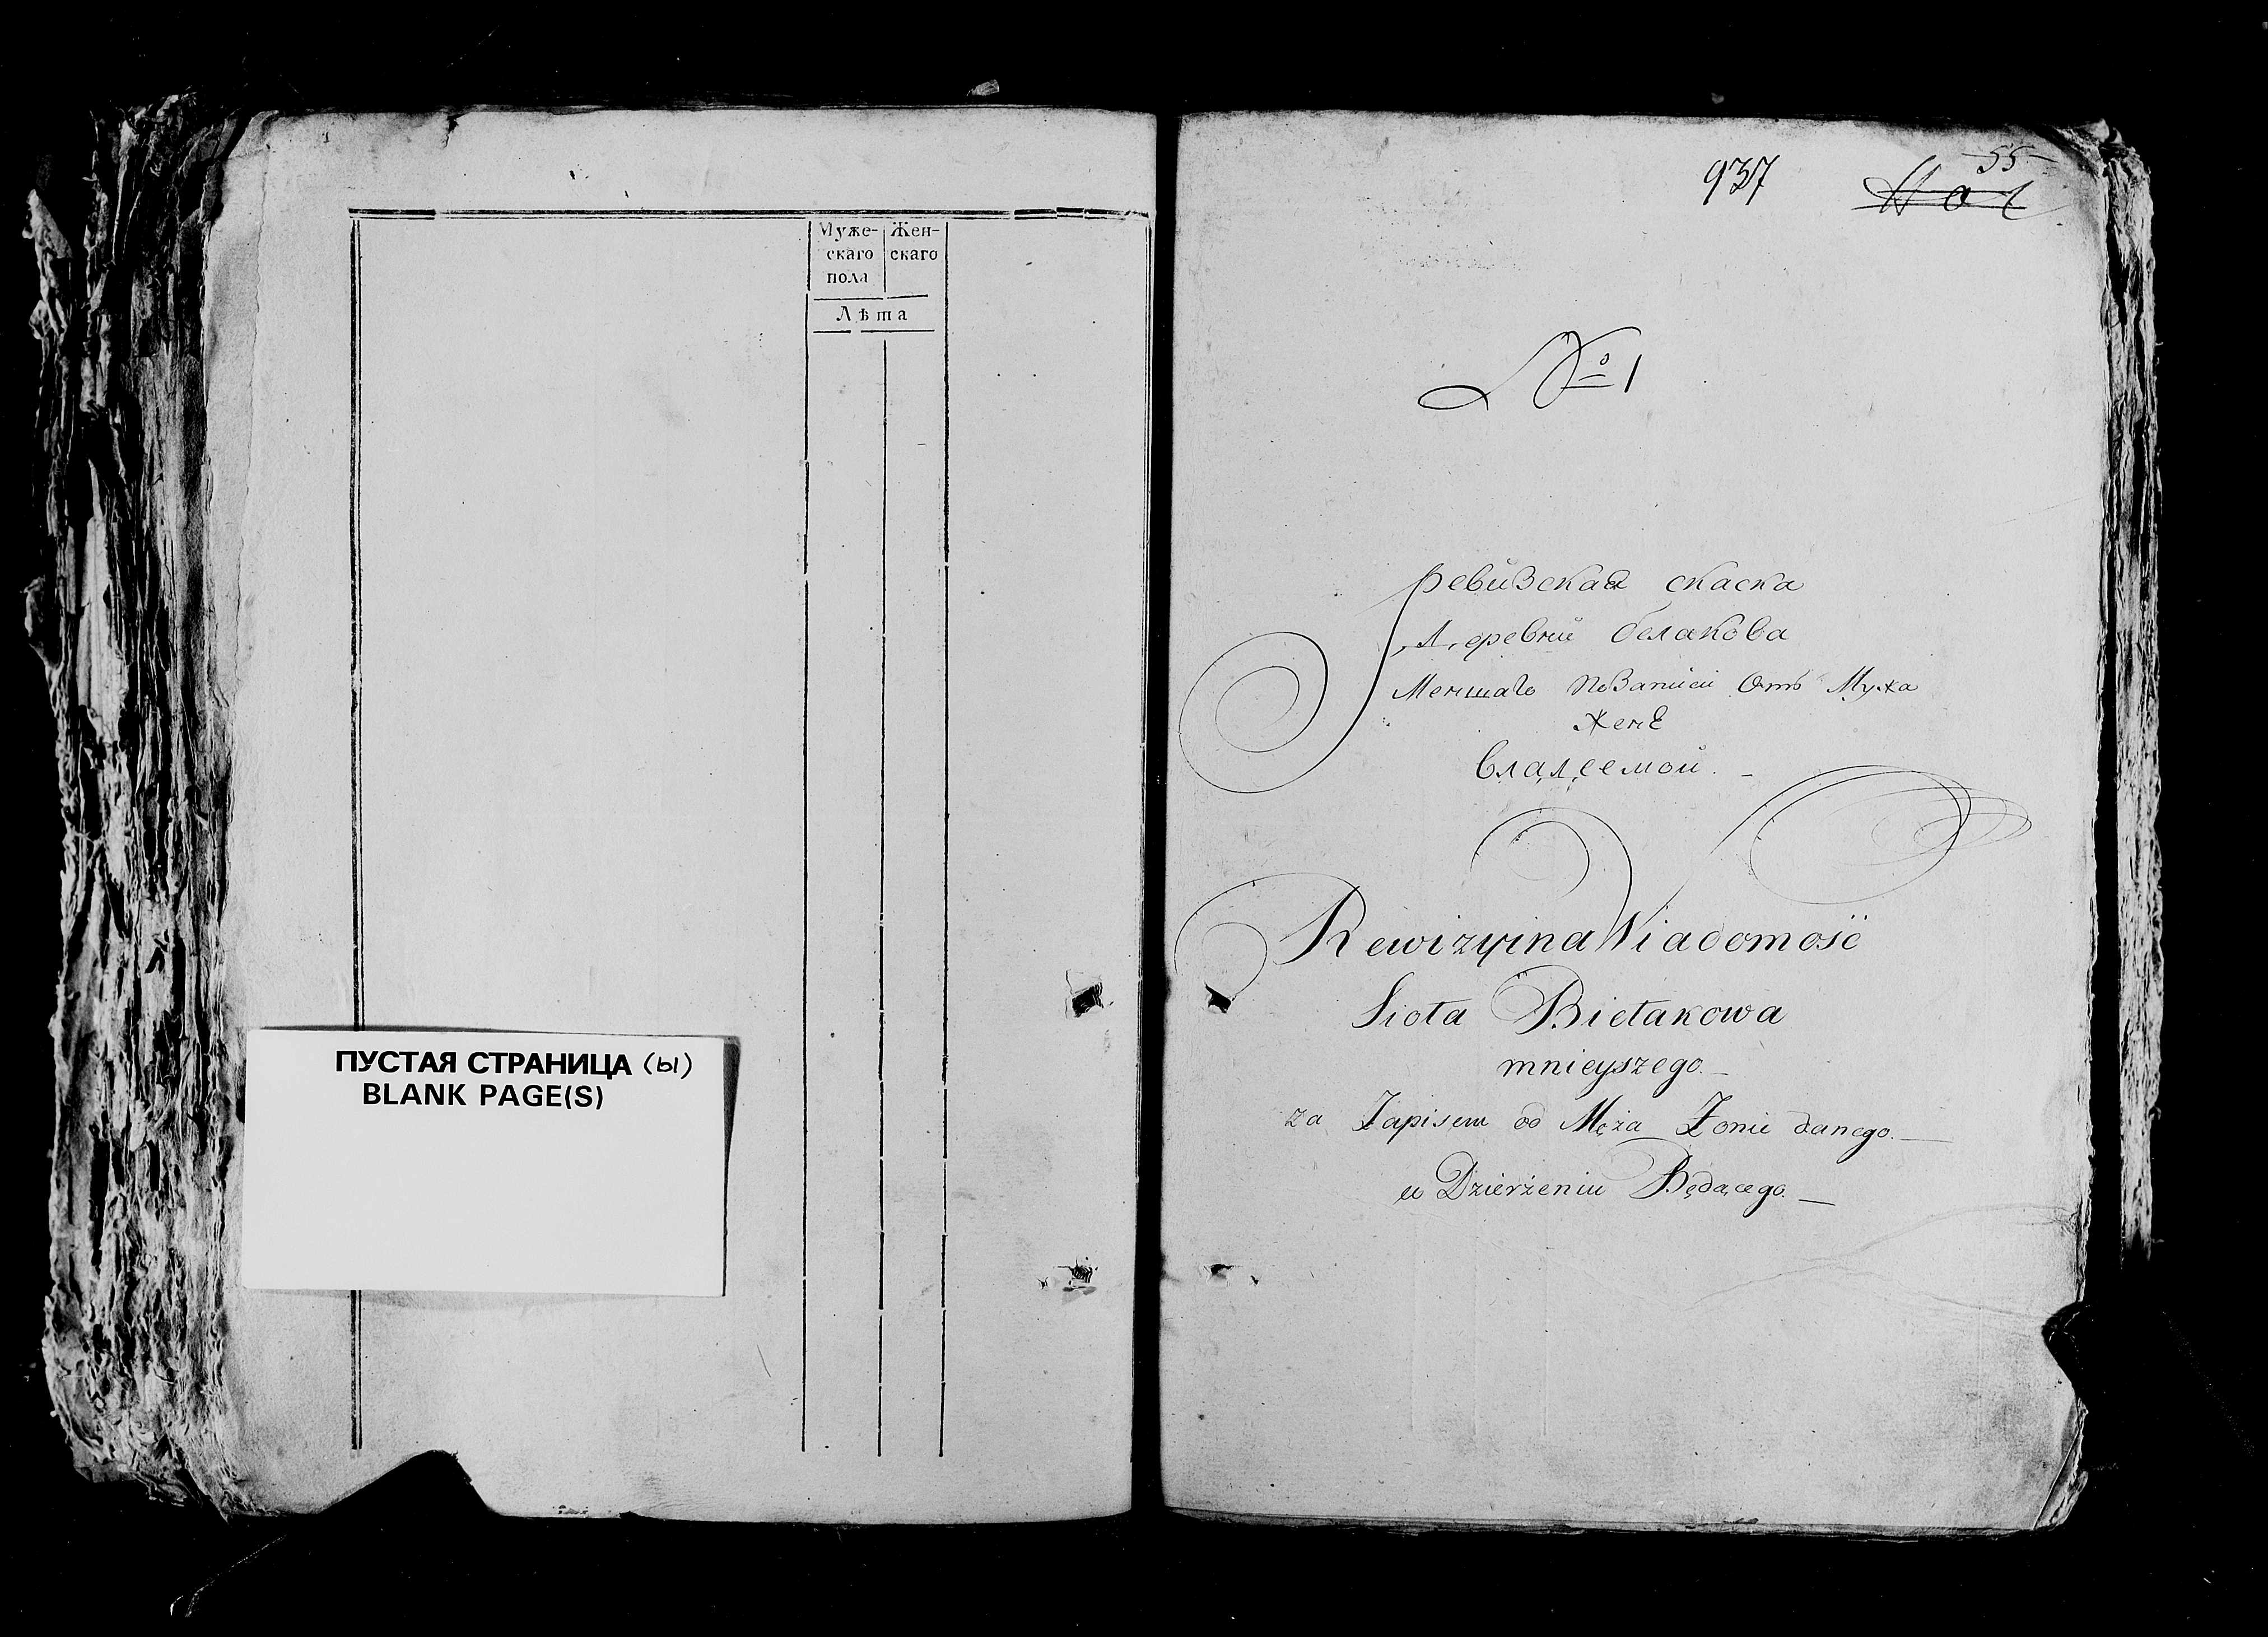 Муже-
скаго
пола
Жен-
скаго
Лѣта
ПУСТАЯ СТРАНИЦА (ы)
BLANK PAGE(S)
937
55
№ 1
Ревизская скаска
деревни белакова
Меншаго По Записи Отъ Мужа
Жене
владеемой.
Rewizyina Wiadomość
Sioła Biełakowa
mnieyszego.
za Zapisem od Męża Żonie danego.
w Dzierżeniu Będącego.